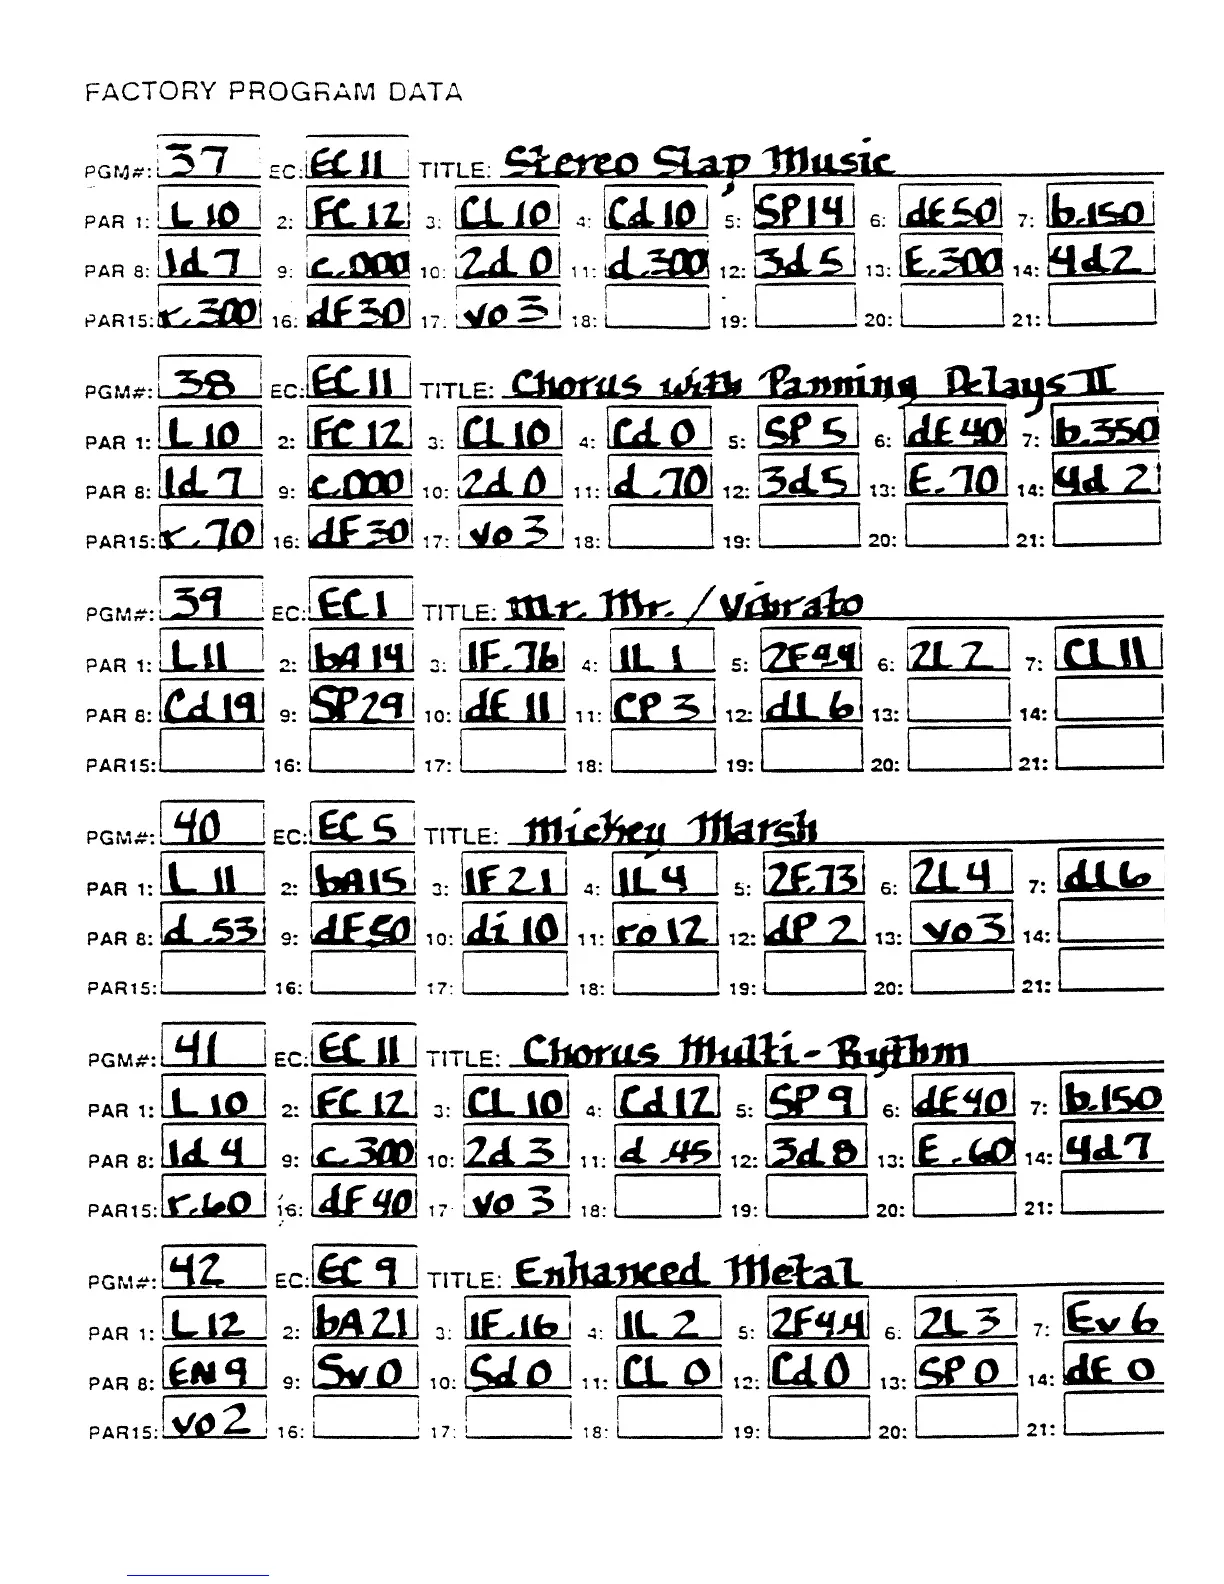 FACTORY PROGRAM DATA
PGM#: 37 EC: EC 11 TITLE: Stereo Slap Music
PAR 1: L 10 2: FC 12 3: CL 10 4: Cd 10 5: SP14 6: dE50 7: b.150
PAR 8: 1d 7 9: c.000 10: 2d 0 11: d.300 12: 3d 5 13: E.300 14: 4d2
PAR15: r.300 16: dF30 17: vo 3 18: 19: 20: 21:
PGM#: 38 EC: EC 11 TITLE: Chorus with Panning Delays II
PAR 1: L 10 2: FC 12 3: CL 10 4: Cd 0 5: SP 5 6: dE40 7: b.350
PAR 8: 1d 7 9: c.000 10: 2d 0 11: d .70 12: 3d5 13: E.70 14: 4d 2
PAR15: r.70 16: dF30 17: vo 3 18: 19: 20: 21:
PGM#: 39 EC: EC 1 TITLE: Mr. Mr. / Vibrato
PAR 1: L 11 2: bA 14 3: 1F.76 4: 1L 1 5: 2F4.4 6: 2L 2 7: CL 11
PAR 8: Cd 19 9: SP29 10: dE 11 11: CP 3 12: dL 6 13: 14:
PAR15: 16: 17: 18: 19: 20: 21:
PGM#: 40 EC: EC 5 TITLE: Mickey Marsh
PAR 1: L 11 2: bA15 3: 1F 2.1 4: 1L 4 5: 2F.73 6: 2L 4 7: dL 6
PAR 8: d .53 9: dF50 10: di 10 11: ro 12 12: dP 2 13: vo 3 14:
PAR15: 16: 17: 18: 19: 20: 21:
PGM#: 41 EC: EC 11 TITLE: Chorus Multi-Rythm
PAR 1: L 10 2: FC 12 3: CL 10 4: Cd 12 5: SP 9 6: dE40 7: b.150
PAR 8: 1d 4 9: c.300 10: 2d 3 11: d .45 12: 3d 8 13: E .60 14: 4d 7
PAR15: r.60 16: dF 40 17: vo 3 18: 19: 20: 21:
PGM#: 42 EC: EC 9 TITLE: Enhanced Metal
PAR 1: L 12 2: bA 21 3: 1F.16 4: 1L 2 5: 2F4.4 6: 2L 3 7: Ev 6
PAR 8: EN 9 9: Sv 0 10: Sd 0 11: CL 0 12: Cd 0 13: SP 0 14: dE 0
PAR15: vo 2 16: 17: 18: 19: 20: 21: